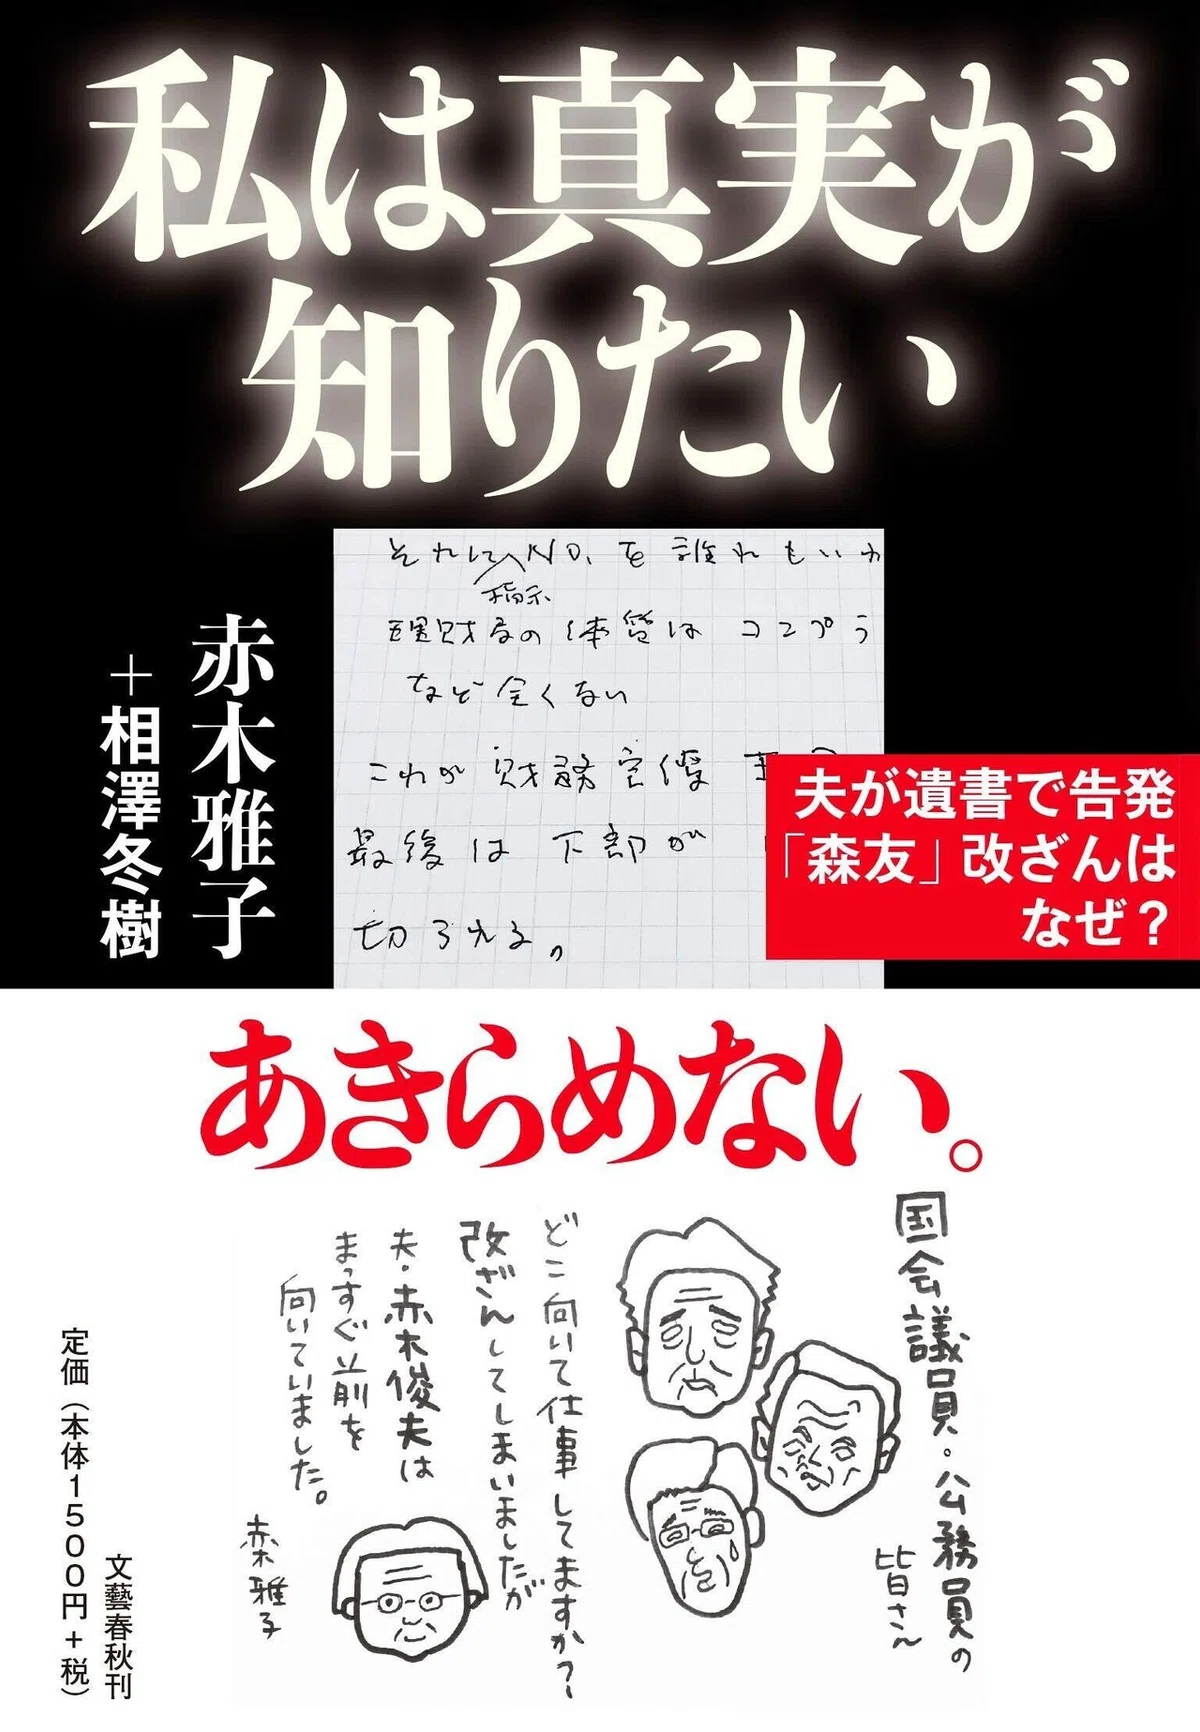 私は真実が
知りたい
赤木雅子
+相澤冬樹
それにNO.を誰れもいわ
指示
理財局の体質はコンプラ
など全くない
これが財務官僚
最後は下部が
切られる。
夫が遺書で告発
「森友」改ざんは
なぜ?
あきらめない。
国会議員。公務員の
皆さん
どこ向いて仕事してますか?
改ざんしてしまいましたが
夫・赤木俊夫は
まっすぐ前を
向いていました。
赤木雅子
定価(本体1500円+税)
文藝春秋刊